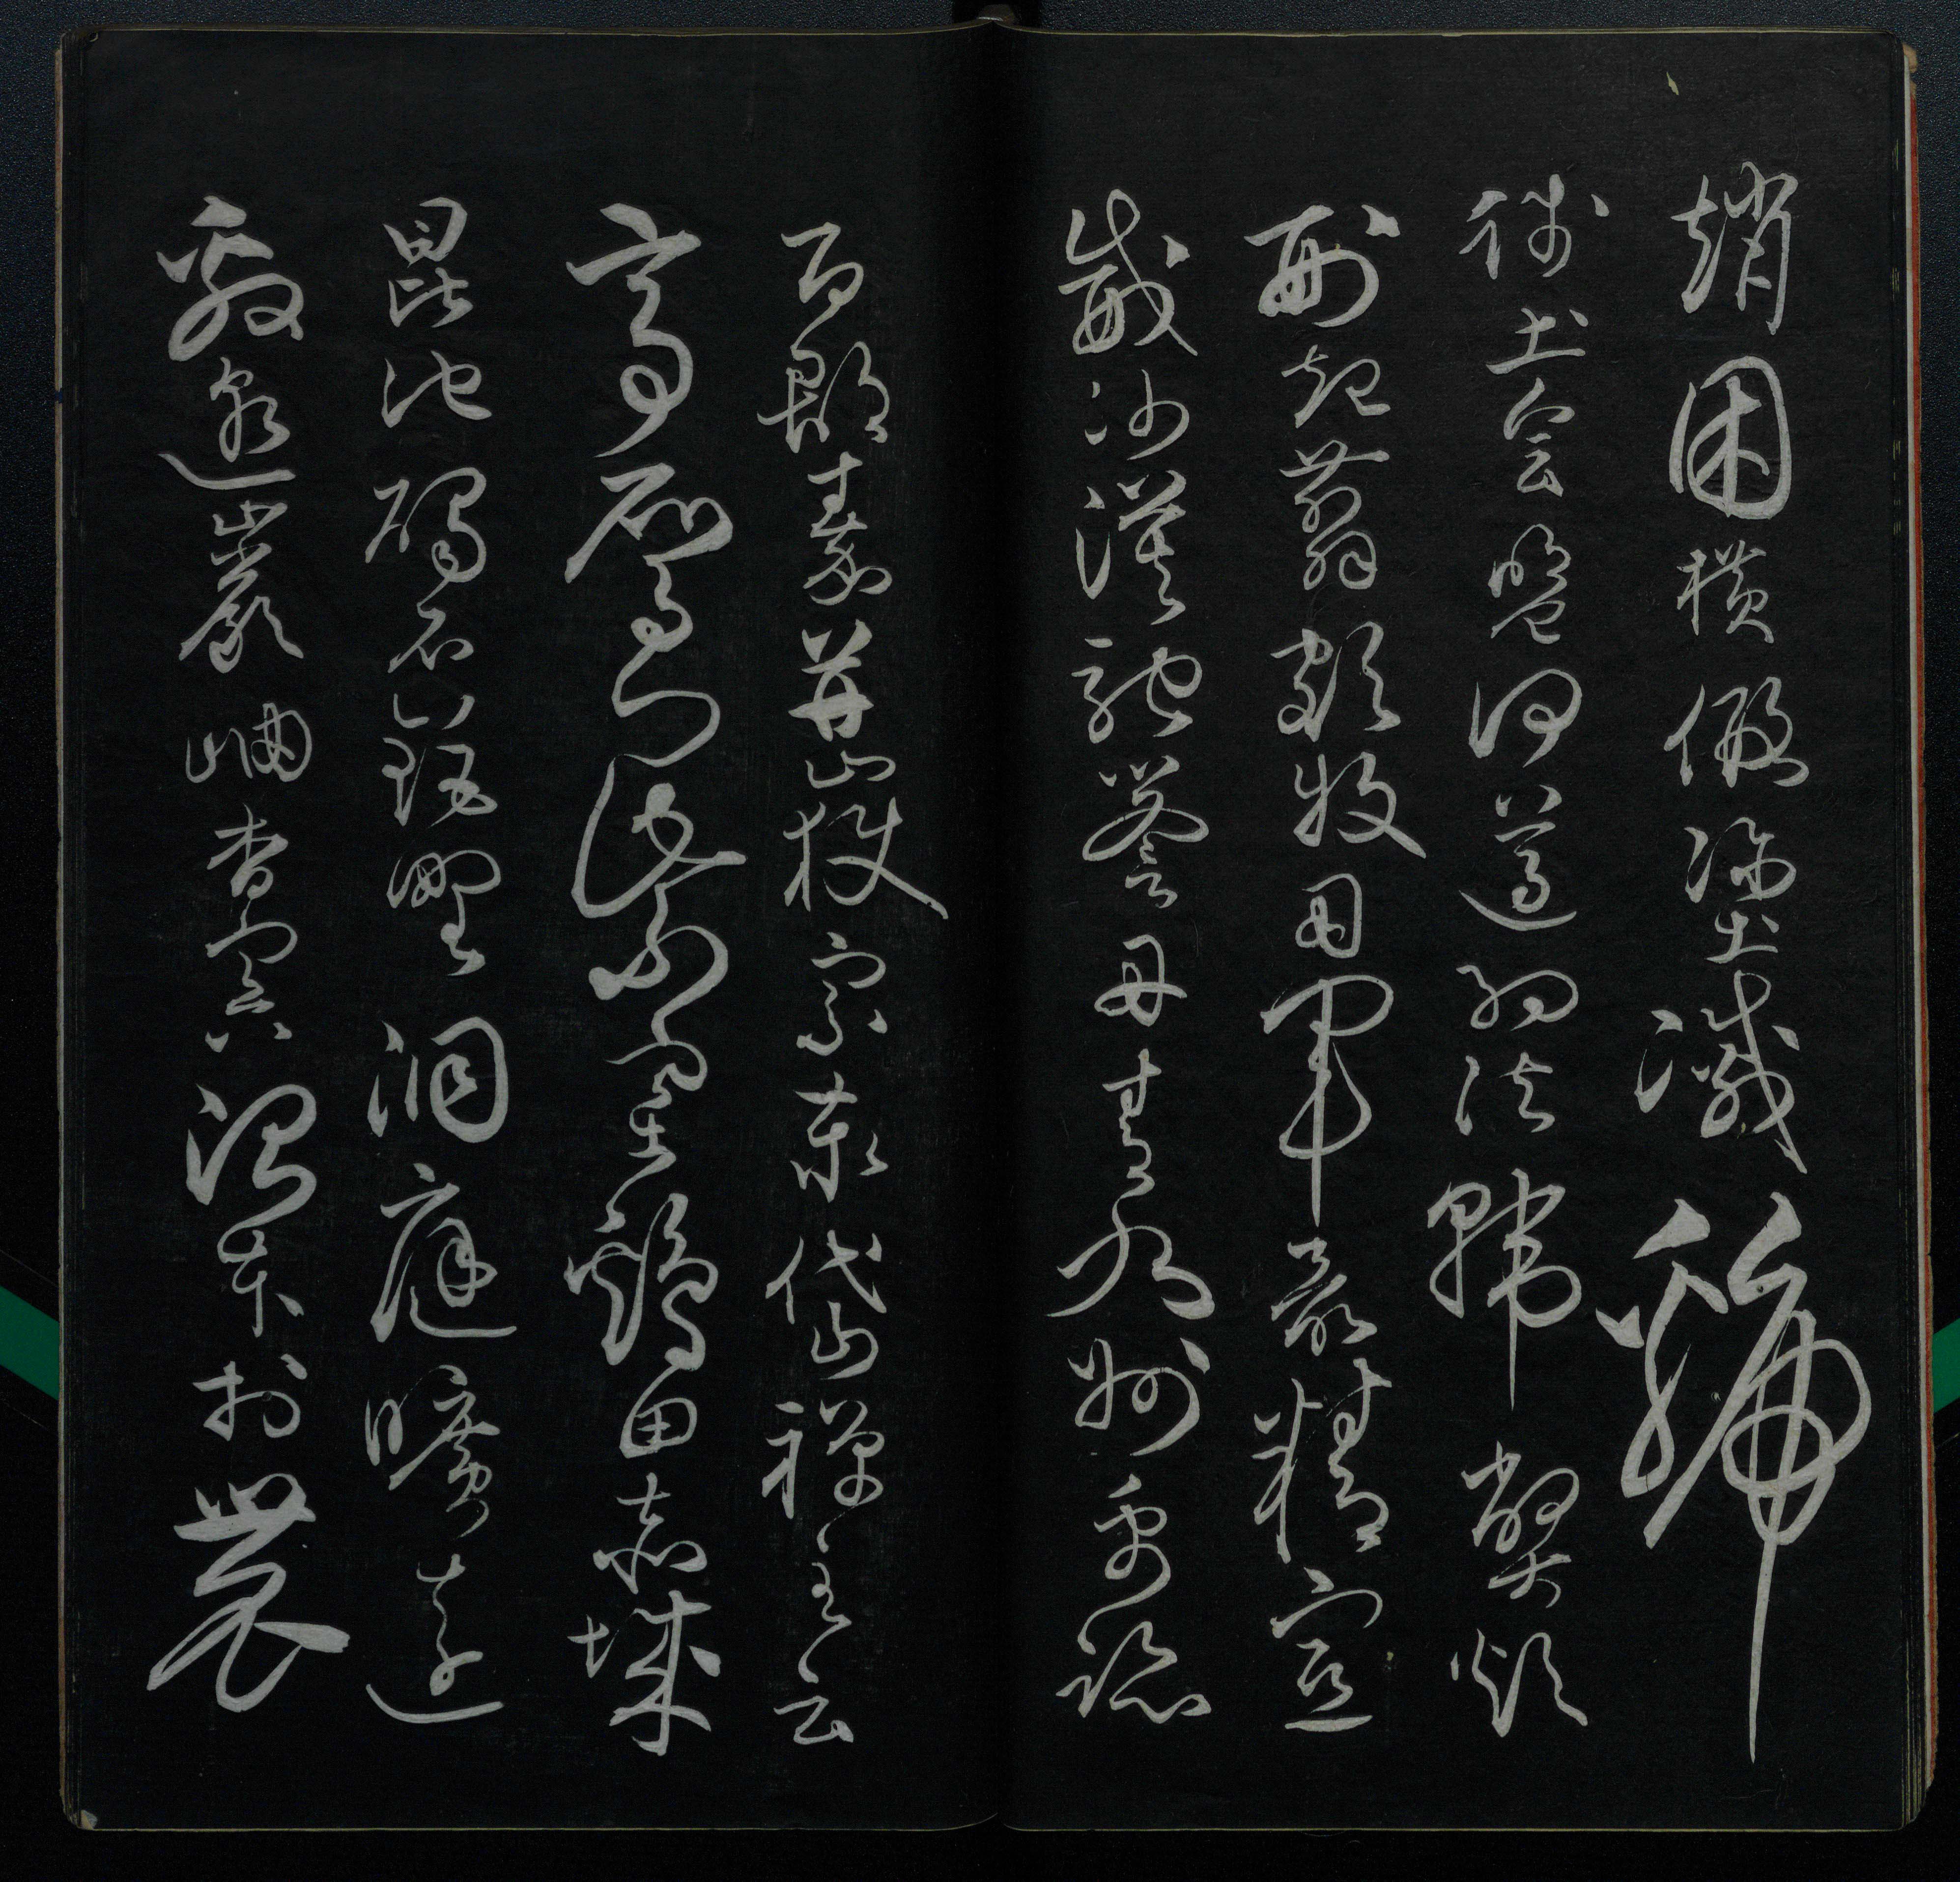 趙困橫假途滅虢
踐土會盟何遵約法韓弊煩
刑起翦頗牧用軍最精宣
威沙漠馳譽丹青九州禹跡
百郡秦并嶽宗泰岱禪主云
亭雁門紫塞雞田赤城
昆池碣石鉅野洞庭曠遠
綿邈巖岫杳冥治本於農